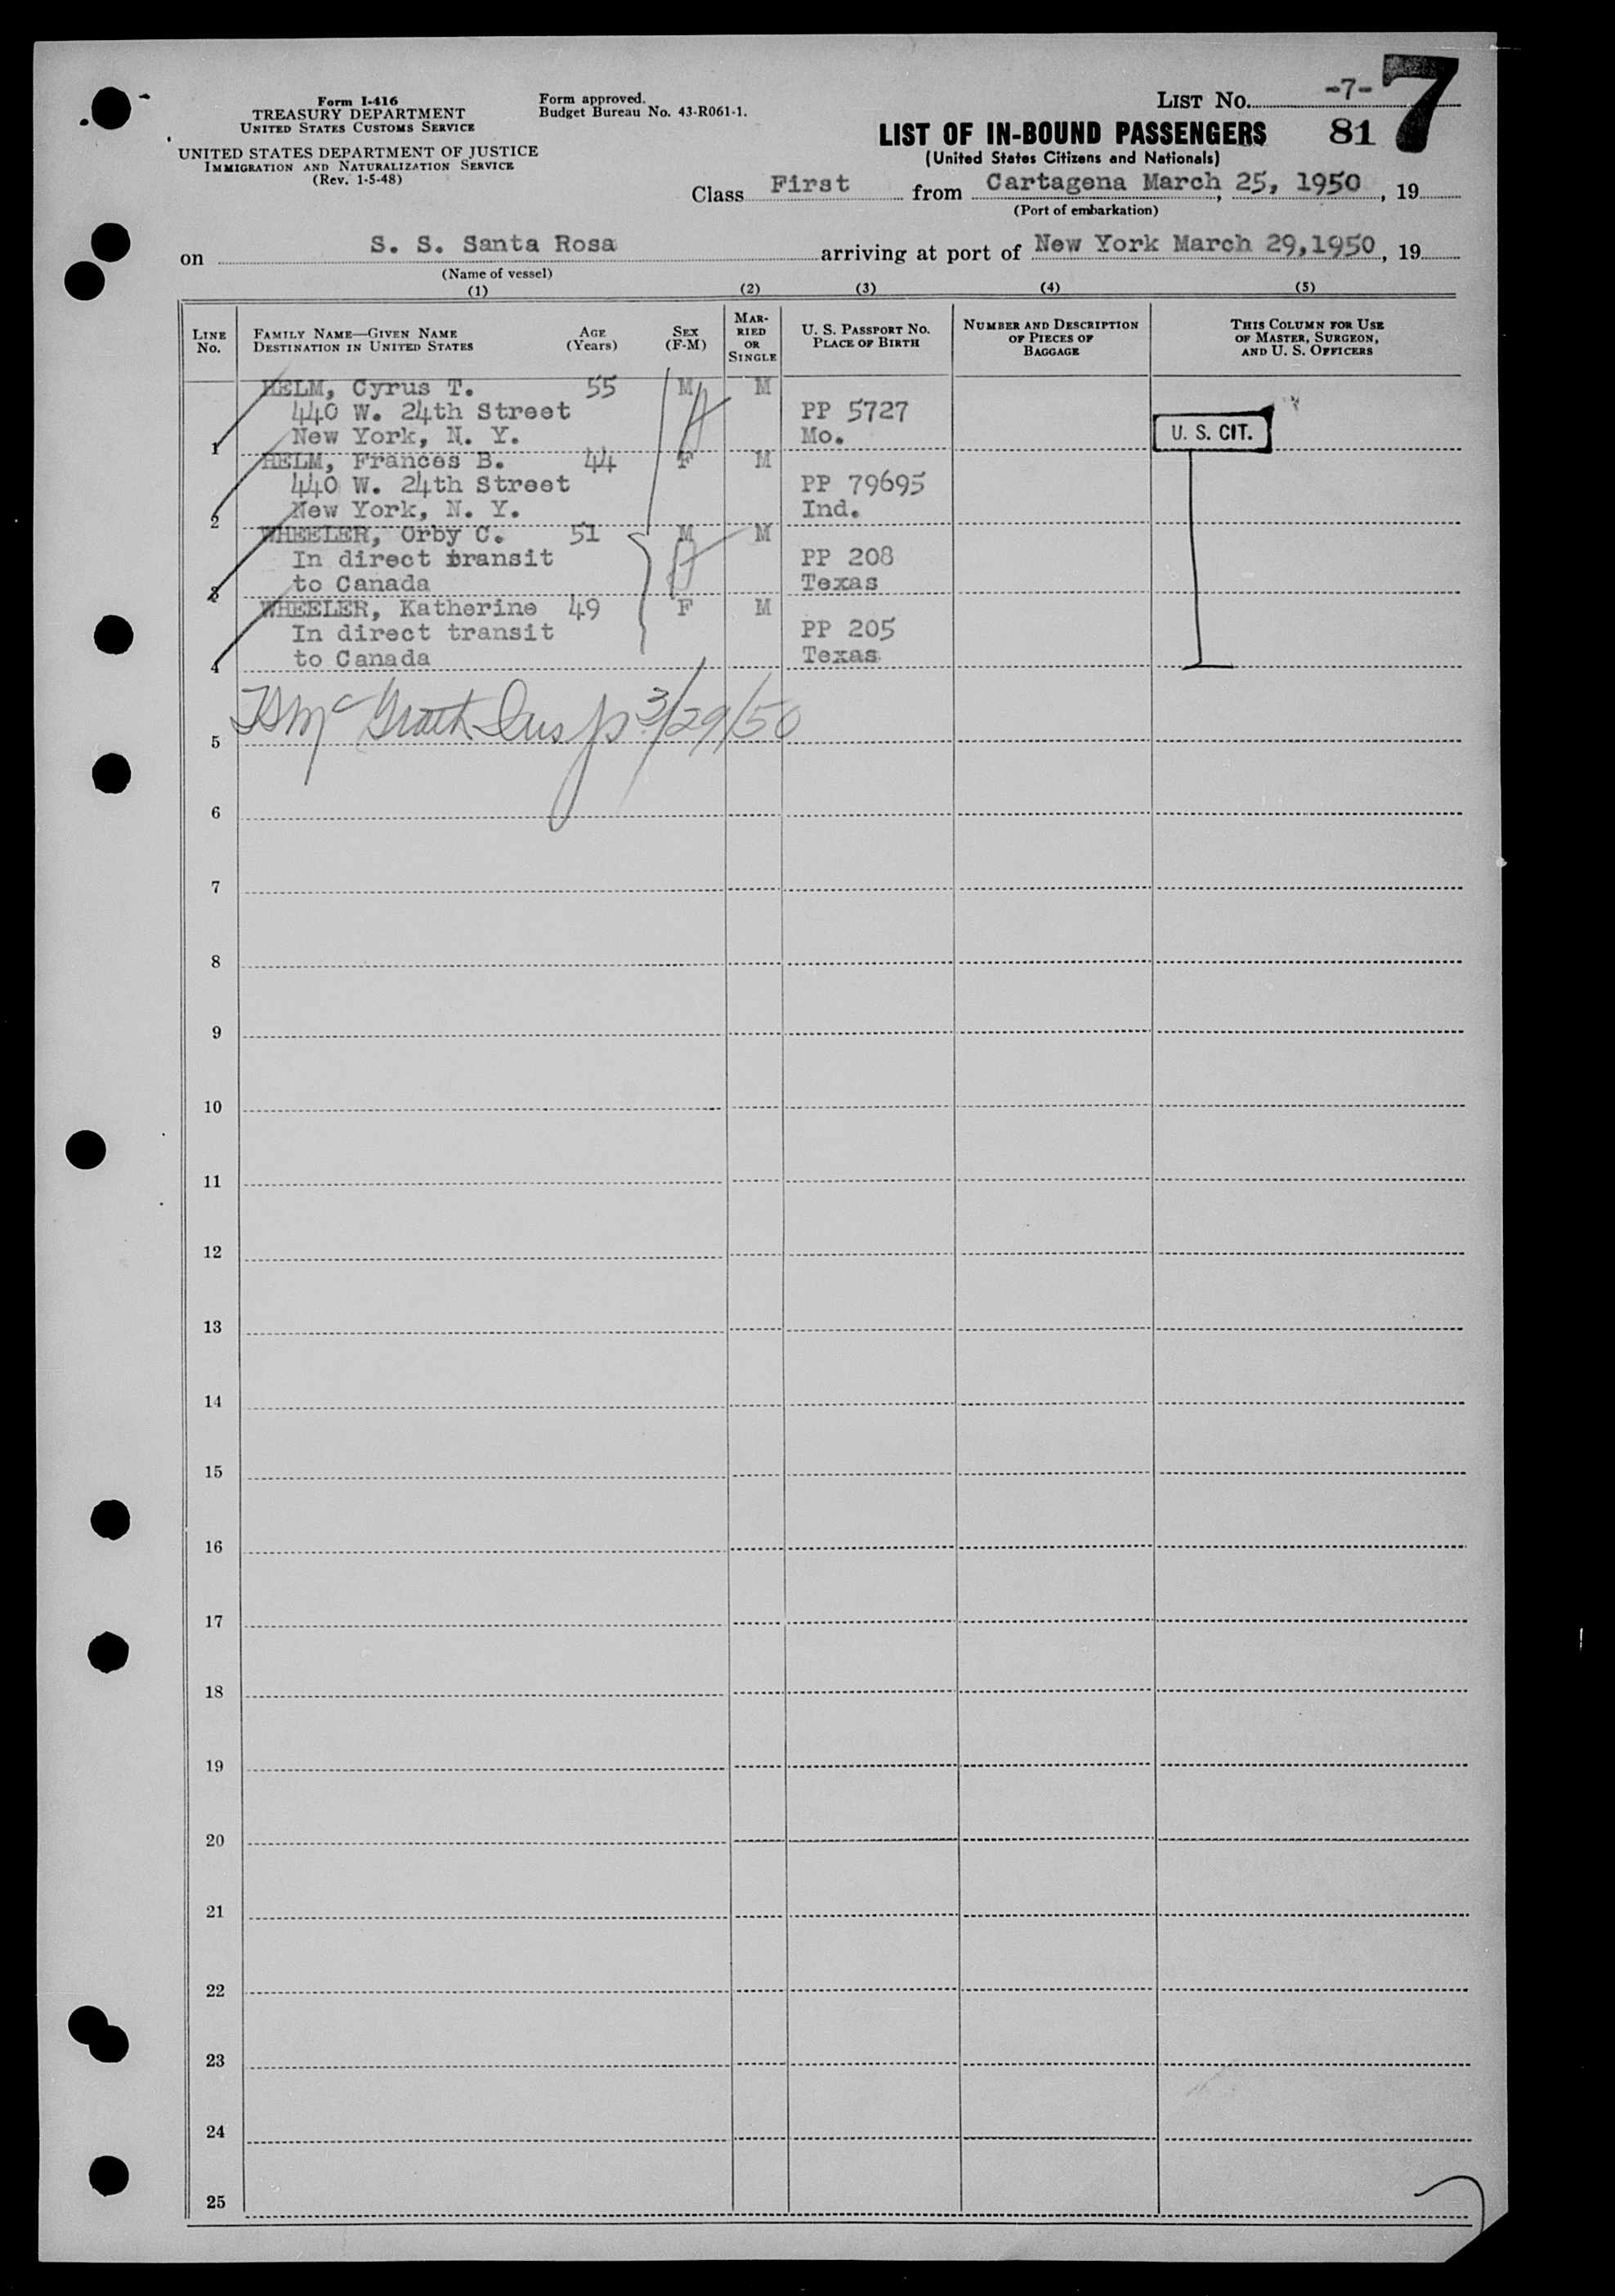 Form I-416
TREASURY DEPARTMENT
UNITED STATES CUSTOMS SERVICE
UNITED STATES DEPARTMENT OF JUSTICE
IMMIGRATION AND NATURALIZATION SERVICE
(Rev. 1-5-48)
Form approved.
Budget Bureau No. 43-R061-1.
LIST NO. -7- 7
LIST OF IN-BOUND PASSENGERS 81
(United States Citizens and Nationals)
Class First from Cartagena March 25, 1950, 19
(Port of embarkation)
on S. S. Santa Rosa arriving at port of New York March 29,1950, 19
(Name of vessel)
(1) (2) (3) (4) (5)
LINE NO.
FAMILY NAME—GIVEN NAME
DESTINATION IN UNITED STATES
AGE (Years)
SEX (F-M)
MARRIED OR SINGLE
U. S. PASSPORT NO.
PLACE OF BIRTH
NUMBER AND DESCRIPTION OF PIECES OF BAGGAGE
THIS COLUMN FOR USE OF MASTER, SURGEON, AND U. S. OFFICERS
HELM, Cyrus T. 55 M M
440 W. 24th Street PP 5727
1 New York, N. Y. Mo. U. S. CIT.
HELM, Frances B. 44 F M
440 W. 24th Street PP 79695
2 New York, N. Y. Ind.
WHEELER, Orby C. 51 M M
In direct transit PP 208
3 to Canada Texas
WHEELER, Katherine 49 F M
In direct transit PP 205
4 to Canada Texas
McGrath Insp 3/29/50
5
6
7
8
9
10
11
12
13
14
15
16
17
18
19
20
21
22
23
24
25